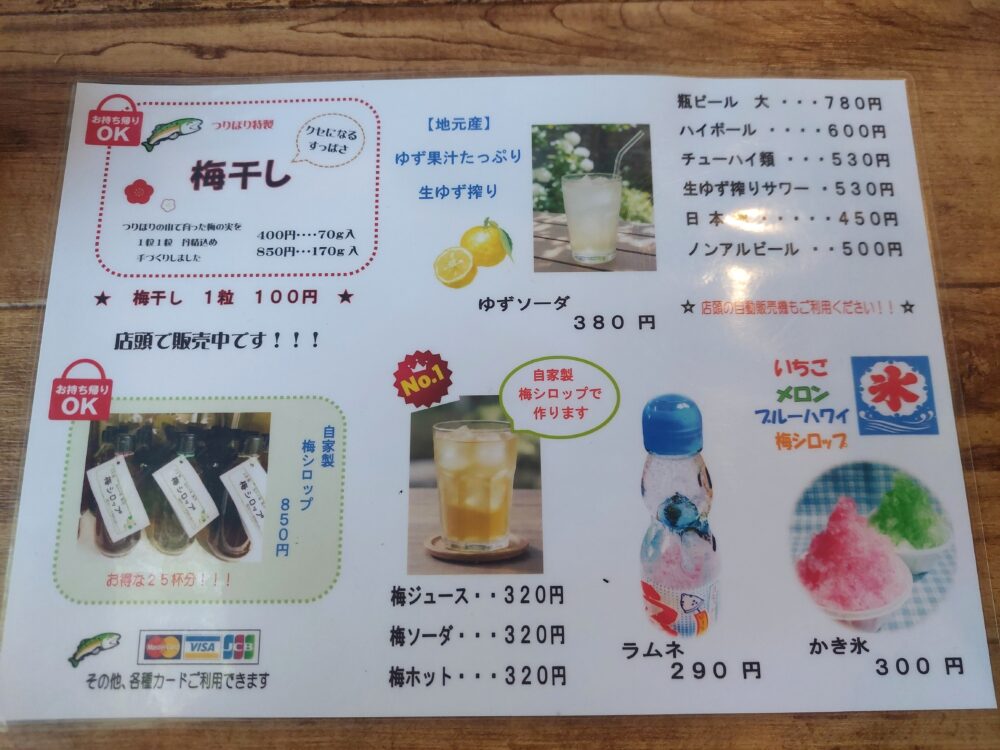 お持ち帰り
OK
つりぼり特製
クセになる
すっぱさ
梅干し
つりぼりの山で育った梅の実を
1粒1粒 丹精込め
手づくりしました
400円‥‥70g入
850円‥‥170g入
★ 梅干し 1粒 100円 ★
店頭で販売中です！！！
【地元産】
ゆず果汁たっぷり
生ゆず搾り
ゆずソーダ
380 円
瓶ビール 大 ・・・780円
ハイボール ・・・・600円
チューハイ類 ・・・530円
生ゆず搾りサワー ・530円
日本 ・・・・・450円
ノンアルビール ・・500円
☆ 店頭の自動販売機もご利用ください！！ ☆
お持ち帰り
OK
自家製
梅シロップ
850円
梅シロップ
梅シロップ
梅シロップ
お得な25杯分！！！
MasterCard
VISA
JCB
その他、各種カードご利用できます
No.1
自家製
梅シロップで
作ります
梅ジュース・・320円
梅ソーダ・・・320円
梅ホット・・・320円
ラムネ
290 円
いちご
メロン
ブルーハワイ
梅シロップ
氷
かき氷
300 円